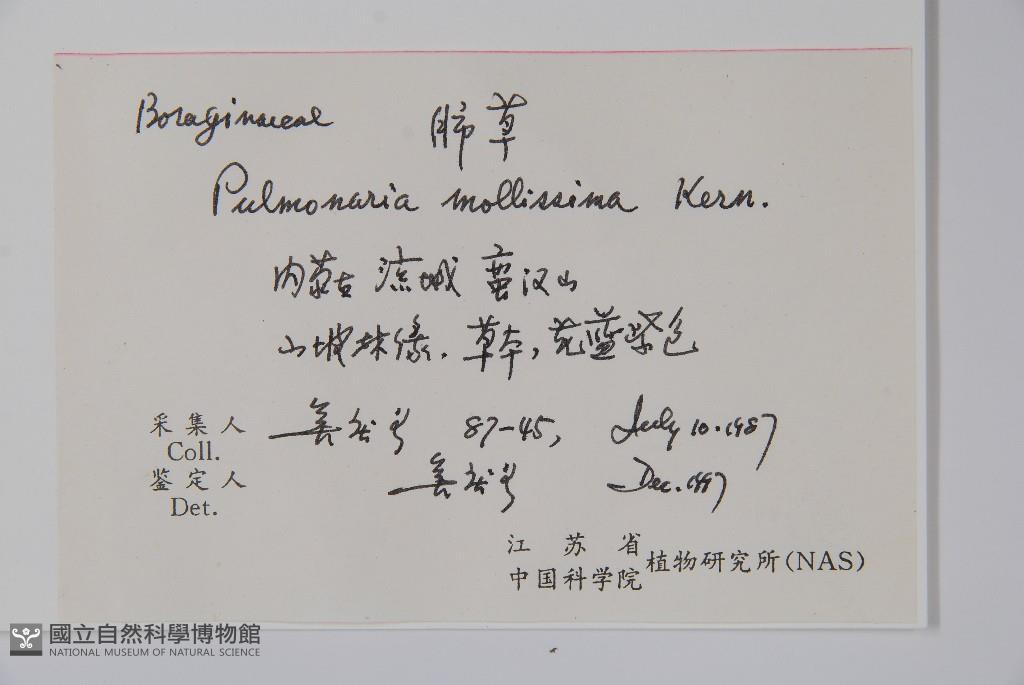 Boraginaceae 肺草
Pulmonaria mollissima Kern.
内蒙古 凉城 蛮汉山
山坡林缘，草本，花蓝紫色
采集人 87-45, July 10. 1987
Coll.
鉴定人 Dec. 1997
Det.
江苏省
中国科学院 植物研究所(NAS)
國立自然科學博物館
NATIONAL MUSEUM OF NATURAL SCIENCE